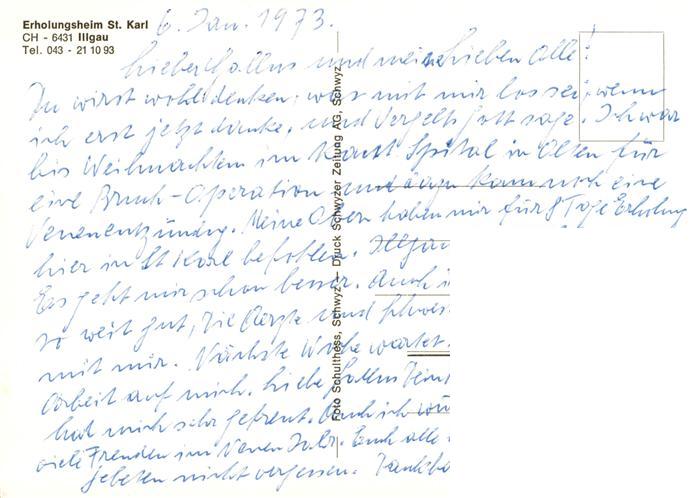 Erholungsheim St. Karl
CH - 6431 Illgau
Tel. 043 - 21 10 93
6. Jan. 1973.
Lieber Gallus und meine Lieben Alle!
Du wirst wohl denken, was mit mir los sei, wenn
ich erst jetzt danke, und Vergelts Gott sage. Ich war
bis Weihnachten im Kant. Spital in Olten für
eine Bruch-Operation und dazu kam noch eine
Venenentzündung. Meine Obern haben mir für 8 Tage Erholung
hier in St Karl befohlen. Illgau
Es geht mir schon besser. Auch i
so weit gut, die Aerzte und Schwes
mit mir. Nächste Woche wartet
Arbeit auf mich. Liebe Gallus Dein
hat mich sehr gefreut. Auch ich wün
viele Freuden im Neuen Jahr. Euch alle
Gebeten nicht vergessen. Dankba
Foto Schulthess, Schwyz — Druck Schwyzer Zeitung AG, Schwyz